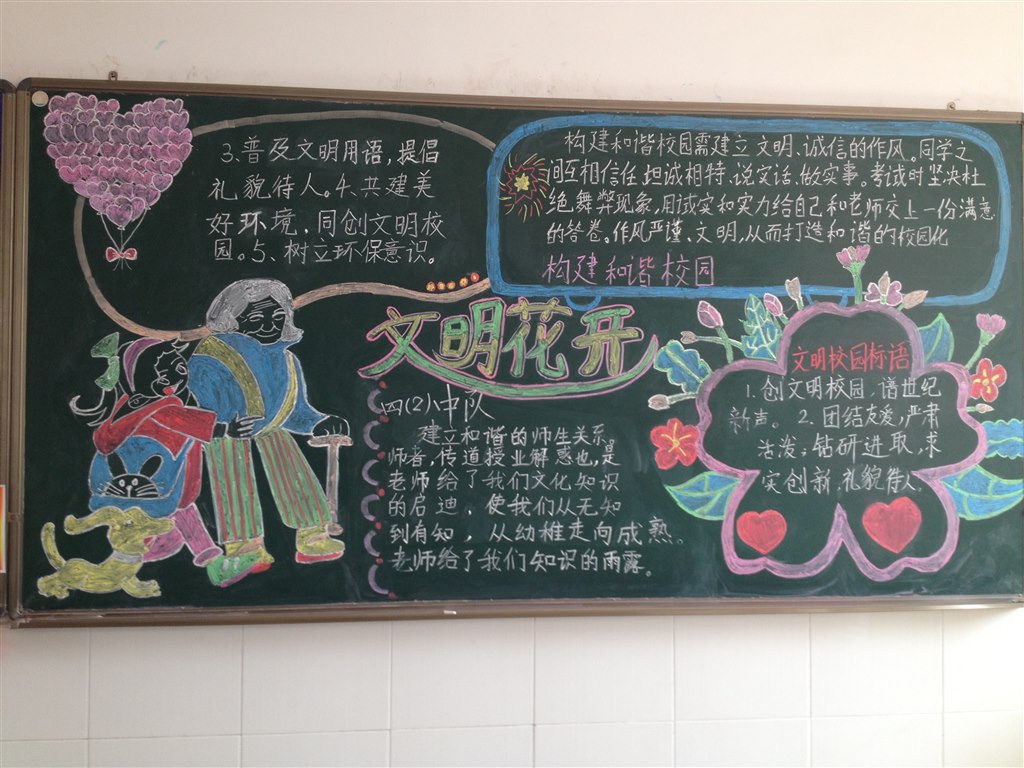 3、普及文明用语，提倡
礼貌待人。4、共建美
好环境，同创文明校
园。5、树立环保意识。
构建和谐校园需建立文明、诚信的作风。同学之
间互相信任,坦诚相特、说实话、做实事。考试时坚决杜
绝舞弊现象，用诚实和实力给自己和老师交上一份满意
的答卷。作风严谨、文明,从而打造和谐的校园化
构建和谐校园
文明花开
四(2)小中队
建立和谐的师生关系。
师者，传道授业解惑也,是
老师给了我们文化知识
的启迪，使我们从无知
到有知，从幼稚走向成熟。
老师给了我们知识的雨露。
文明校园标语
1.创文明校园，谱世纪
新声。2.团结友爱,严肃
活泼；钻研进取,求
实创新,礼貌待人。